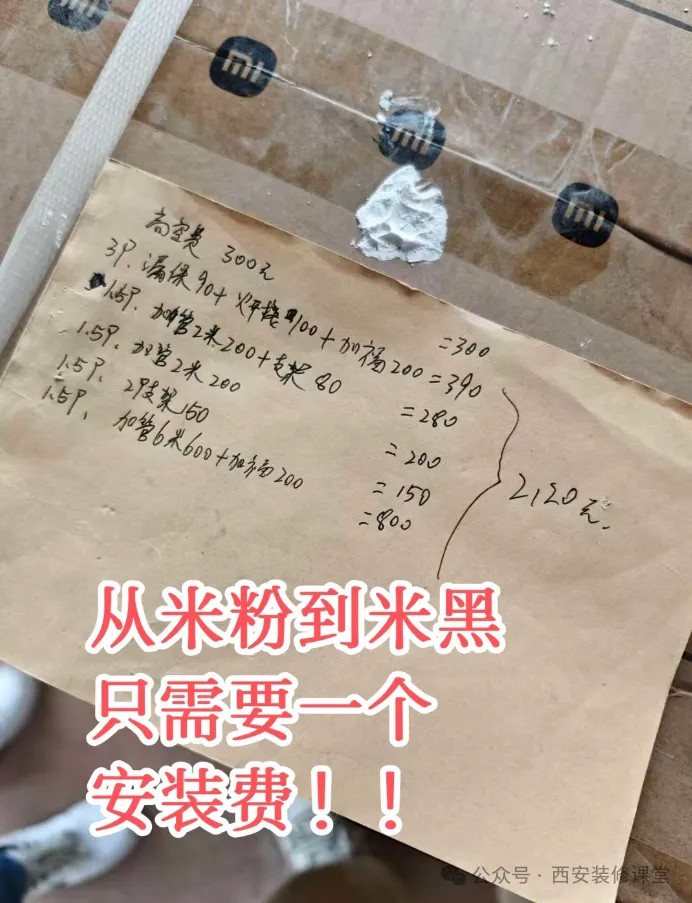 mi
mi
mi
mi
高空费 300元 =300
3P. 漏保90+ 焊接100+加福200=390
1.5P. 加管2米200+支架80 =280
1.5P. 加管2米200 =200
1.5P. 2P支架150 =150
1.5P. 加管6米600+加福200 =800
2120元.
从米粉到米黑
只需要一个
安装费！！
公众号·西安装修课堂